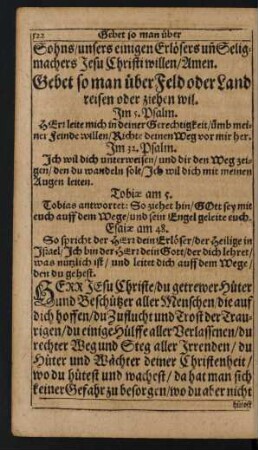 522 Gebet so man über
Sohns/unsers einigen Erlösers uñ Selig-
machers Jesu Christi willen/Amen.
Gebet so man über Feld oder Land
reisen oder ziehen wil.
Im 5. Psalm.
HErr leite mich in deiner Gerechtigkeit/ümb mei-
ner Feinde willen/Richte deinen Weg vor mir her.
Im 32. Psalm.
Ich wil dich unterweisen/und dir den Weg zei-
gen/den du wandeln solt/Ich wil dich mit meinen
Augen leiten.
Tobiæ am 5.
Tobias antwortet: So ziehet hin/GOtt sey mit
euch auff dem Wege/und sein Engel geleite euch.
Esaiæ am 48.
So spricht der HErr dein Erlöser/der Heilige in
Israel/Ich bin der HErr dein Gott/der dich lehret/
was nützlich ist/und leitet dich auff dem Wege/
den du gehest.
HERR JEsu Christe/du getrewer Hüter
und Beschützer aller Menschen/die auf
dich hoffen/du Zuflucht und Trost der Trau-
rigen/du einige Hülffe aller Verlassenen/du
rechter Weg und Steg aller Irrenden/du
Hüter und Wächter deiner Christenheit/
wo du hütest und wachest/da hat man sich
keiner Gefahr zu besorgen/wo du aber nicht
hütest